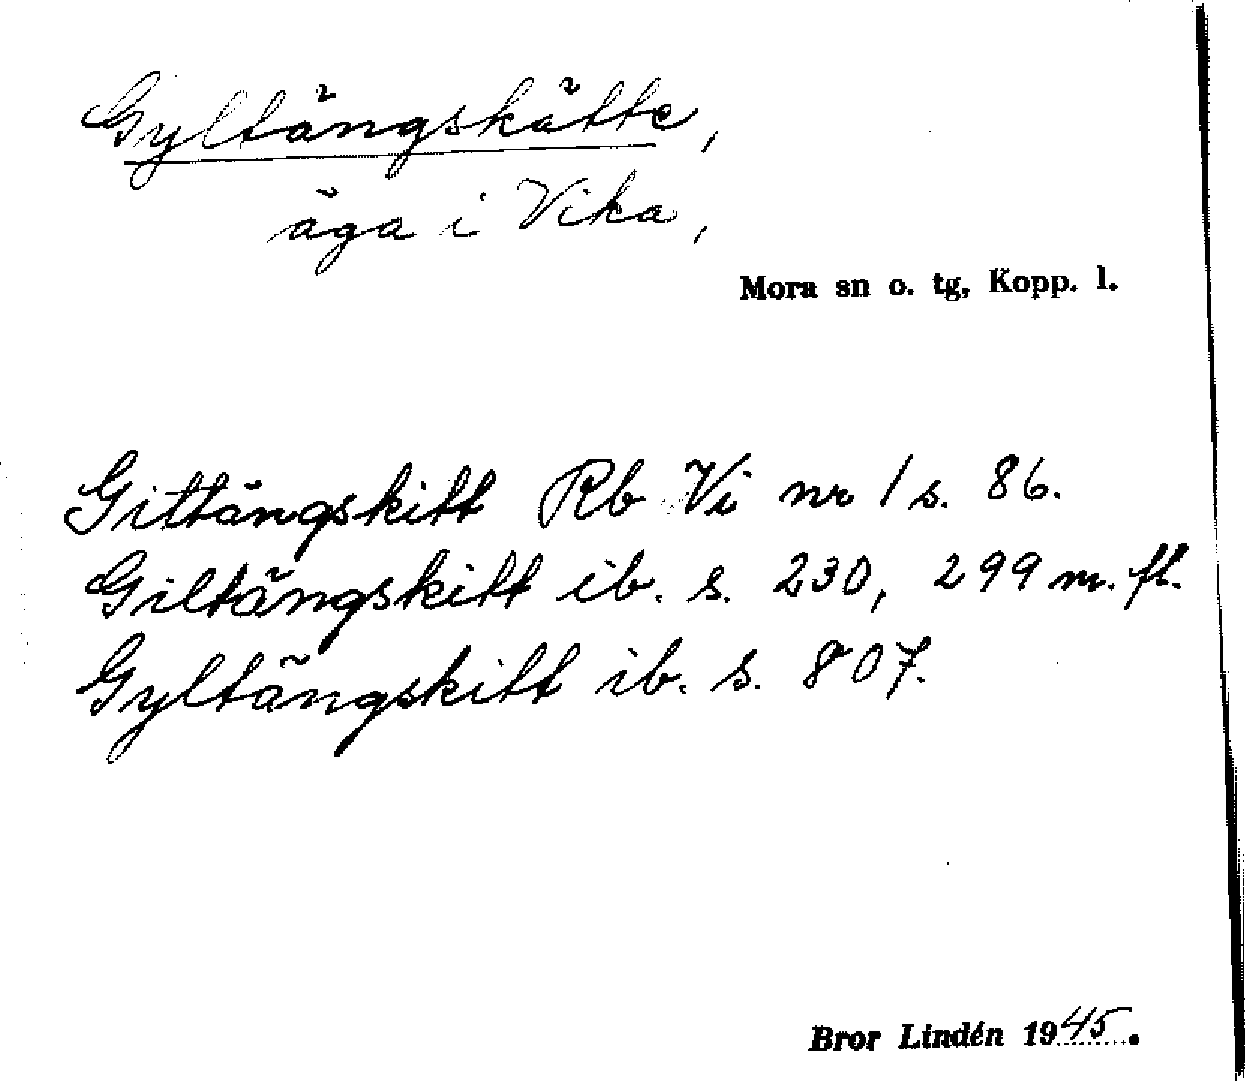 Gyltängskätte,
äga i Vika,
Mora sn o. tg, Kopp. l.
Gittängskitt Rb Vi nr 1 s. 86.
Giltängskitt ib. s. 230, 299 m. fl.
Gyltängskitt ib. s. 807.
Bror Lindén 1945.